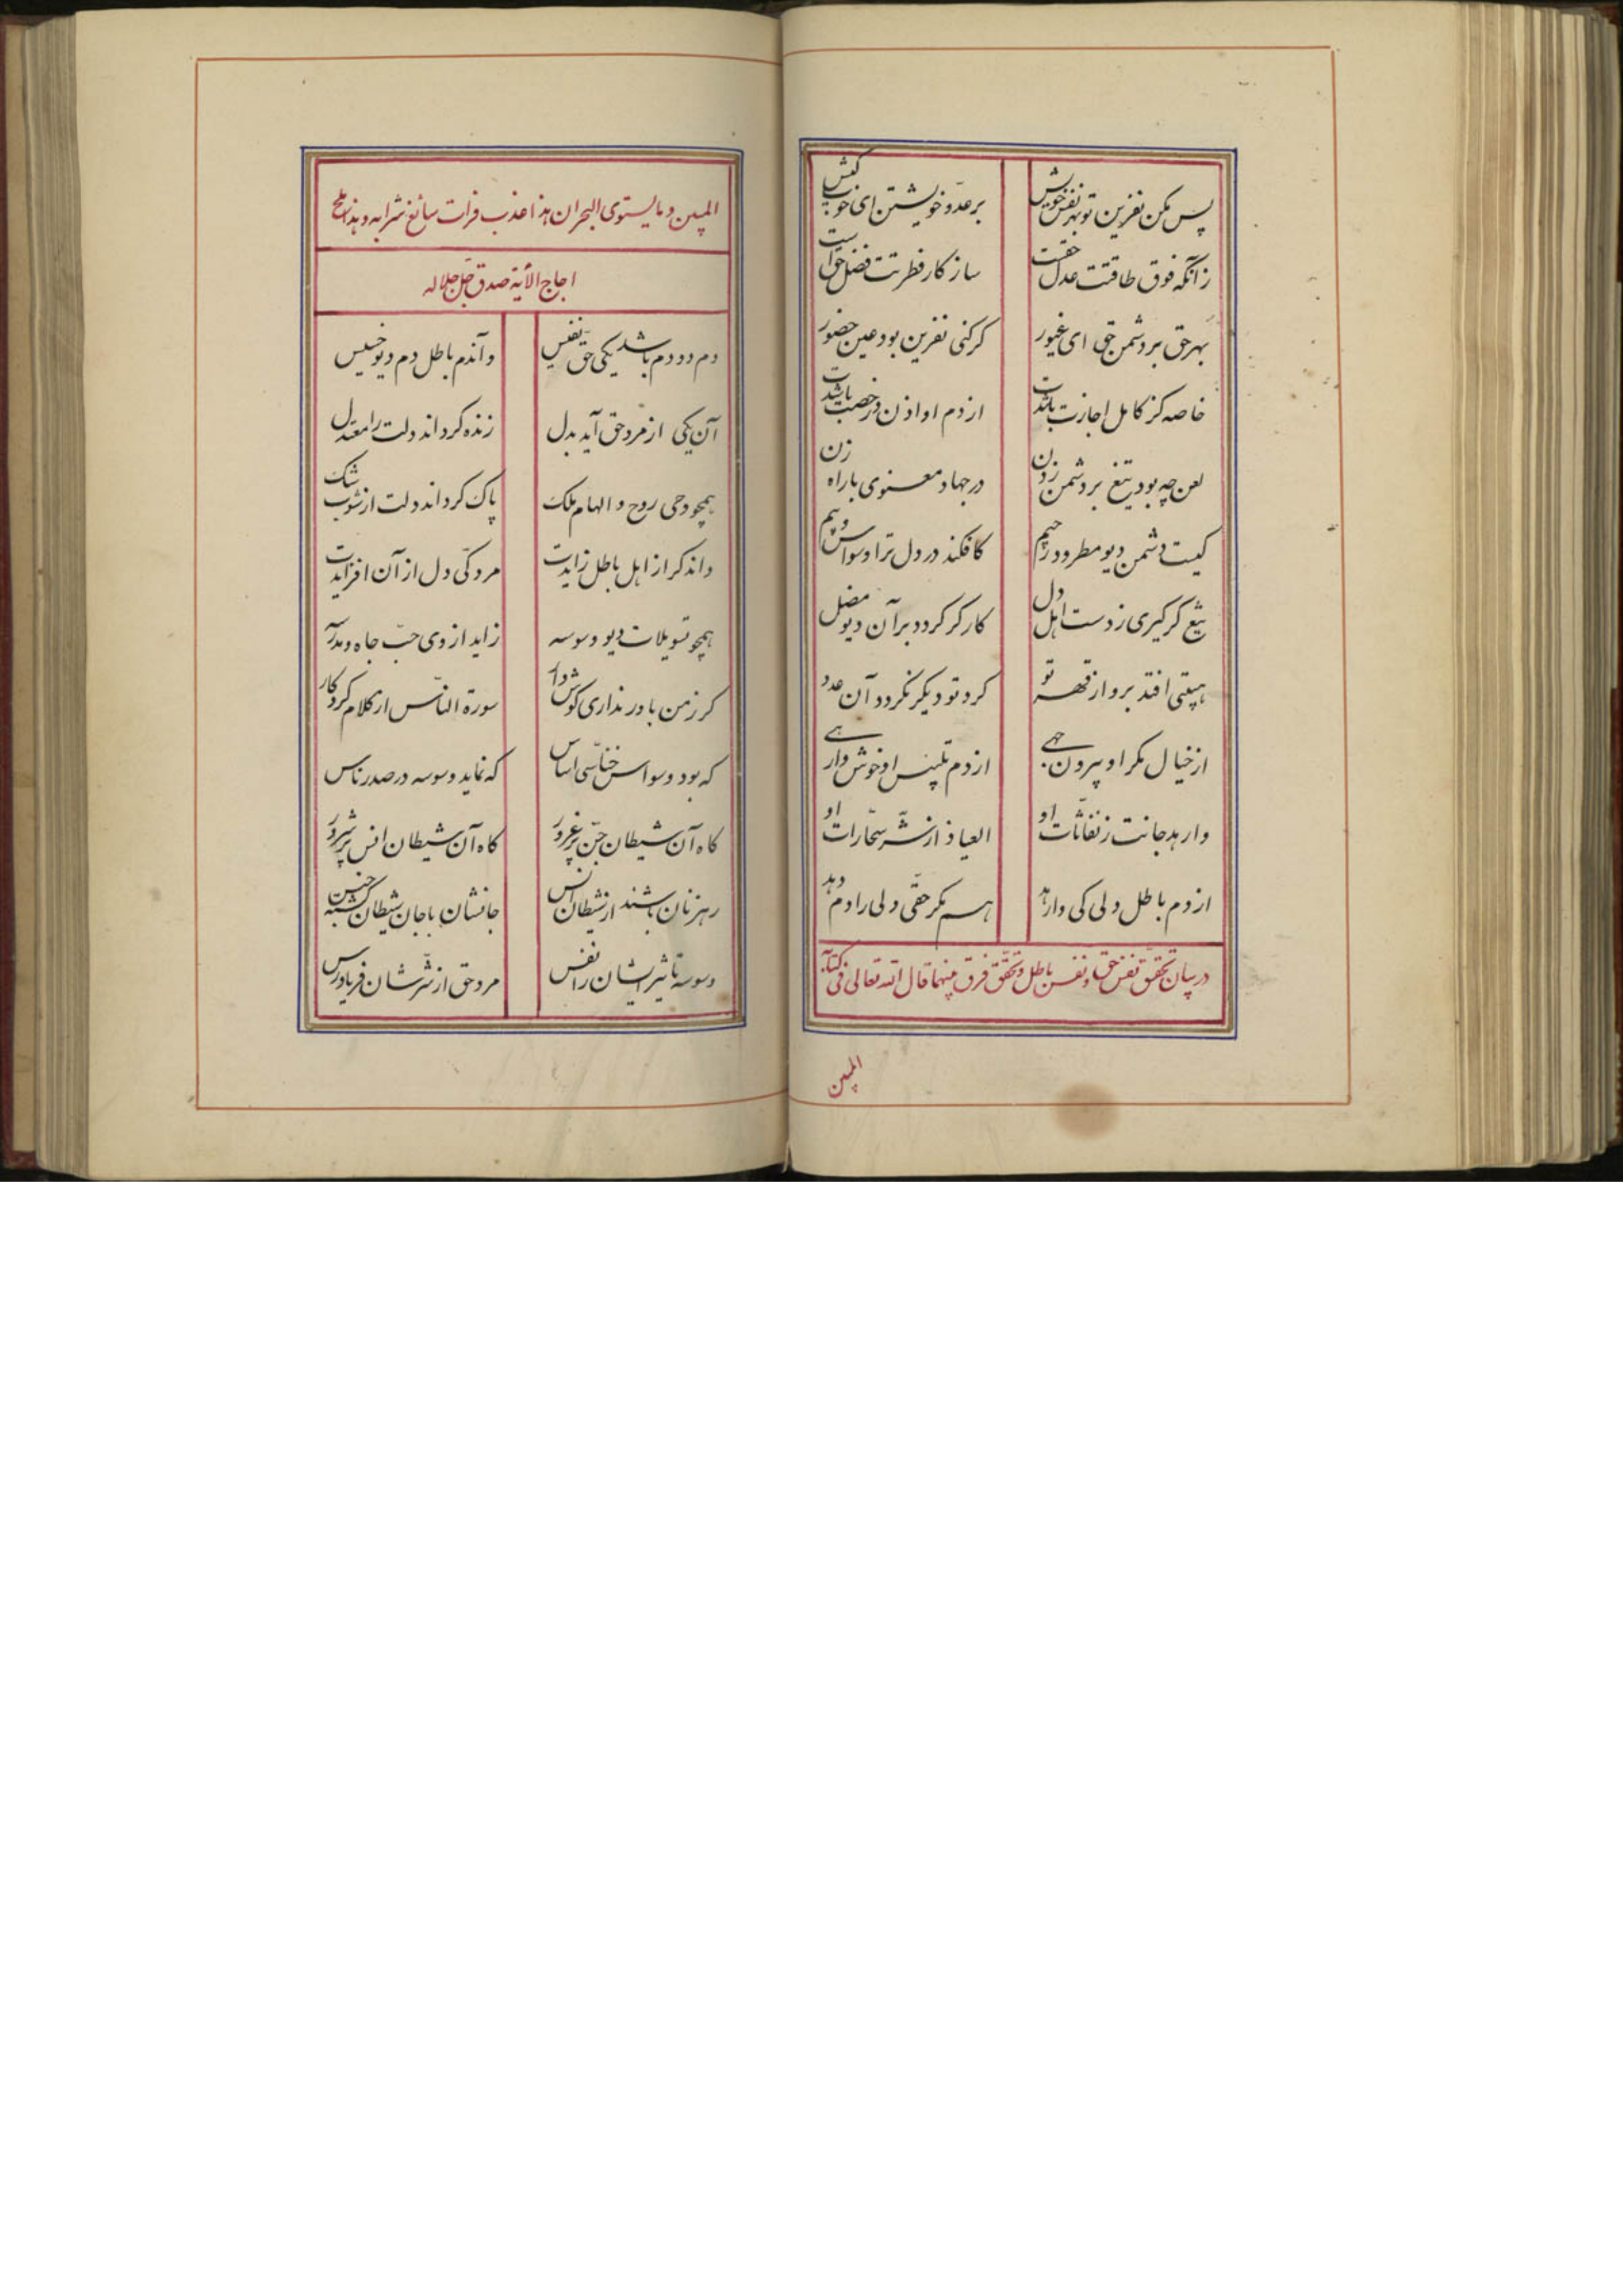 پس مکن نفرین تو بهر نفس خویش برعدو خویشتن ای خوب کیش
زآنکه فوق طاقتت عدل حقست ساز کار فطرتت فضل حق است
بهر حق بر دشمن حق ای غیور کر کنی نفرین بود عین حضور
خاصه کز کامل اجازت باشدت از دم او اذن و رخصت باشدت
لعن چه بود تیغ بر دشمن زدن در جهاد معنوی با راه زن
کیست دشمن دیو مطرود رجیم کافکند در دل ترا وسواس و بیم
تیغ کر کیری ز دست اهل دل کارکر کردد بر آن دیو مضل
هیبتی افتد برو از قهر تو کرد تو دیکر نکردد آن عدو
از خیال مکر او بیرون جهی از دم تلبیس او خوش وارهی
وارهد جانت ز نفاثات او العیاذ از شر سحارات او
از دم باطل دلی کی وارهد هم مکر حقی دلی را دم دهد
در بیان تحقق نفس حق و نفس باطل و تحقق فرق بینهما قال الله تعالی فی کتابه
المبین
المبین و مایستوی البحران هذا عذب فرات سائغ شرابه و هذا ملح
اجاج الآیة صدق جل جلاله
دم دو دم باشد یکی حق نفیس وآندم باطل دم دیو خسیس
آن یکی از مرد حق آید بدل زنده کرداند دلت را معتدل
همچو وحی روح و الهام ملک پاک کرداند دلت از شوب شک
واندکر از اهل باطل زایدت مردکی دل از آن افزایدت
همچو تسویلات دیو وسوسه زاید از وی حب جاه و مدرسه
کر زمن باور نداری کوش دار سورة الناس از کلام کردکار
که بود وسواس خناسی اساس که نماید وسوسه در صدر ناس
کاه آن شیطان جن پر غرور کاه آن شیطان انس پر شرور
رهزنان باشند از شیطان انس جانشان با جان شیطان کشته جنس
وسوسه تاثیر ایشان را نفس مرد حق از شرشان فریادرس